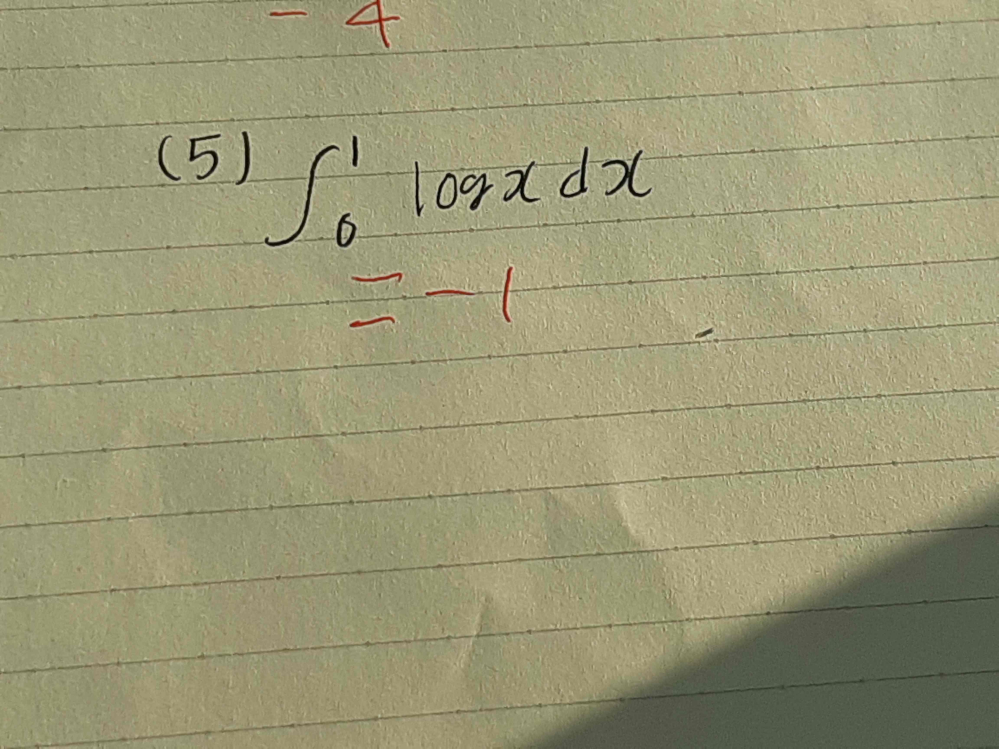 - 4
(5) ∫₀¹ log x dx
= -1